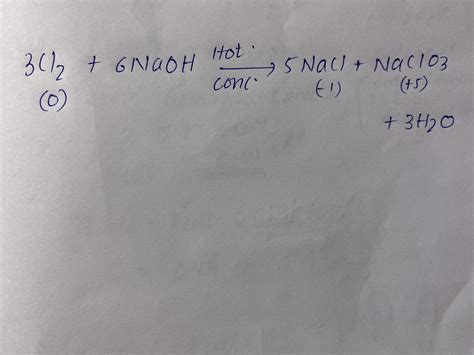 3Cl2 + 6NaOH Hot. conc. → 5NaCl + NaClO3
(0) (-1) (+5)
+ 3H2O